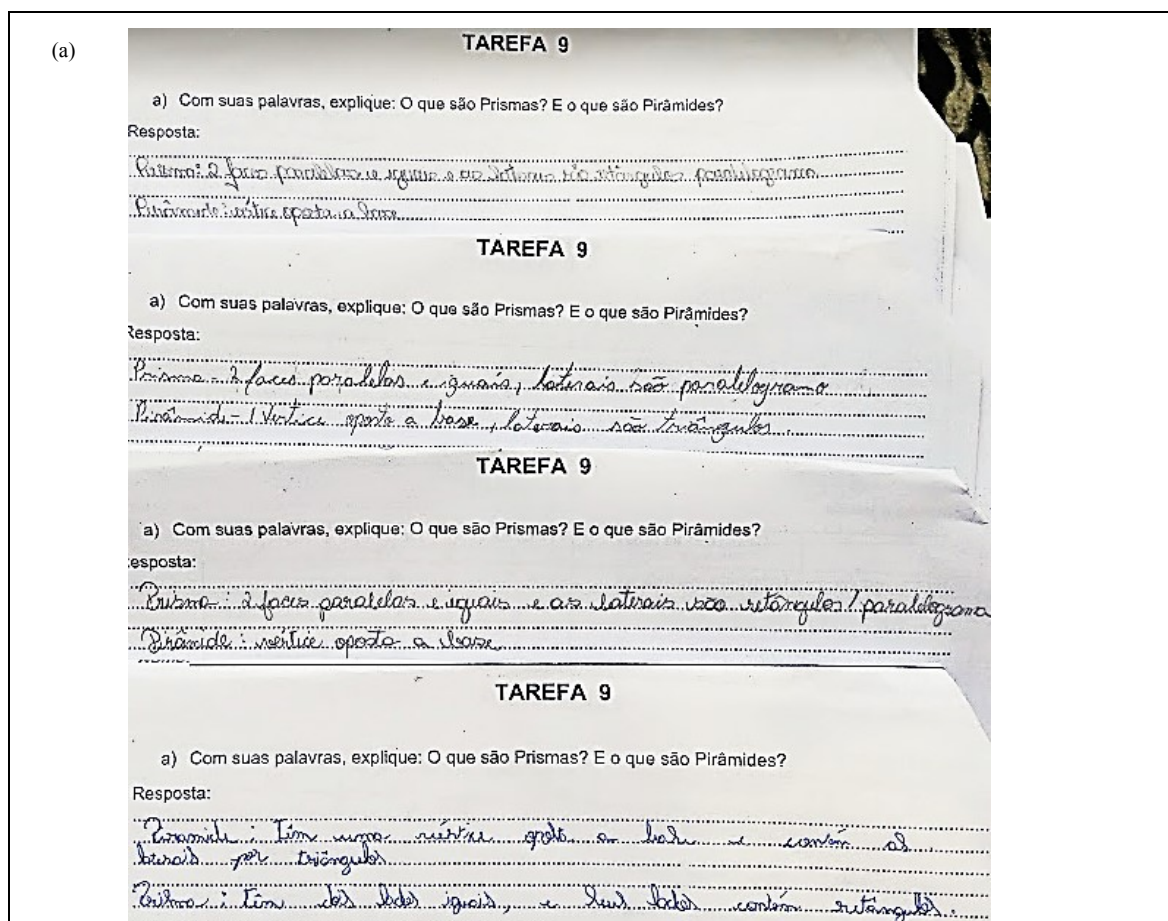 (a)
TAREFA 9
a) Com suas palavras, explique: O que são Prismas? E o que são Pirâmides?
Resposta:
Prisma: 2 faces paralelas e iguais e as laterais são retângulos paralelogramo
Pirâmide: vértice oposta a base
TAREFA 9
a) Com suas palavras, explique: O que são Prismas? E o que são Pirâmides?
Resposta:
Prisma - 2 faces paralelas e iguais, laterais são paralelogramo
Pirâmide - 1 vertice oposto a base, laterais são triângulos.
TAREFA 9
a) Com suas palavras, explique: O que são Prismas? E o que são Pirâmides?
esposta:
Prisma: 2 faces paralelas e iguais e as laterais são retângulos/ paralelograma
Pirâmide: vértice oposto a base
TAREFA 9
a) Com suas palavras, explique: O que são Prismas? E o que são Pirâmides?
Resposta:
Piramide: Tem uma vértice a base e contém as
laterais por triângulos
Prisma: Tem dois lados iguais, e seus lados contém retângulos.